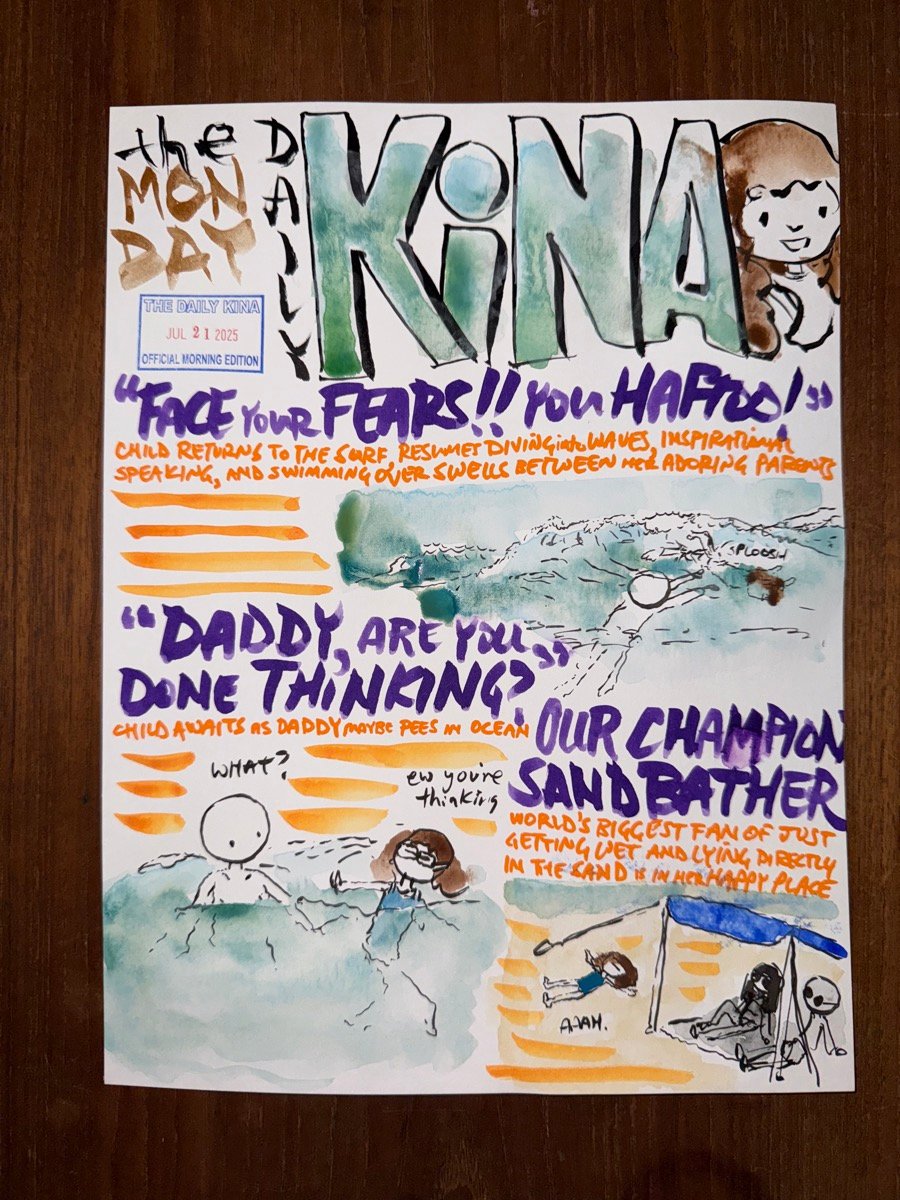 the
MON
DAY
DAILY
KiNA
THE DAILY KINA
JUL 21 2025
OFFICIAL MORNING EDITION
"FACE YOUR FEARS!! YOU HAFTOO!"
CHILD RETURNS TO THE SURF, RESUMET DIVING into WAVES, INSPIRATIONAL
SPEAKING, AND SWIMMING OVER SWELLS BETWEEN HER ADORING PARENTS
SPLOOSH
"DADDY, ARE YOU
DONE THINKING?"
CHILD AWAITS AS DADDY MAYBE PEES IN OCEAN
WHAT?
ew you're
thinking
OUR CHAMPION
SANDBATHER
WORLD'S BIGGEST FAN OF JUST
GETTING WET AND LYING DIRECTLY
IN THE SAND IS IN HER HAPPY PLACE